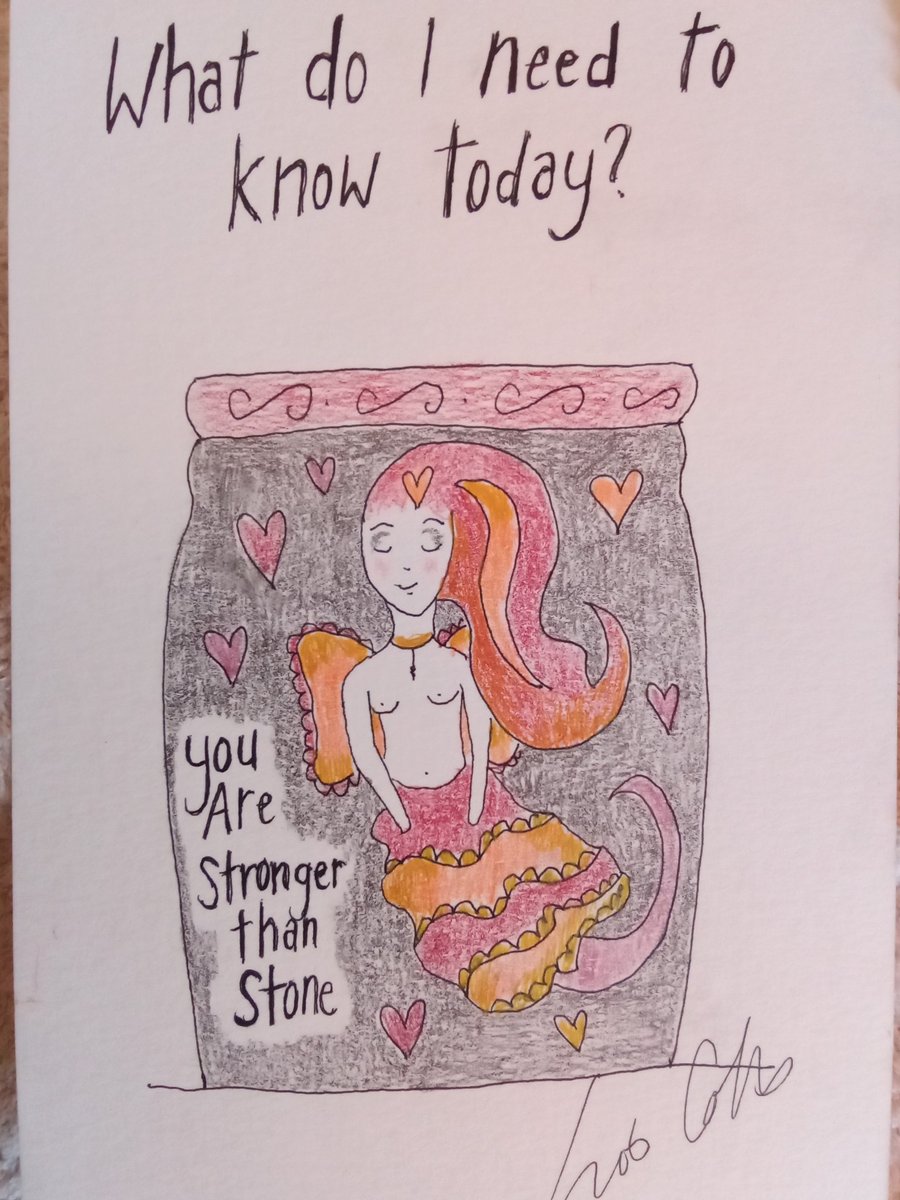 What do I need to
know today?
you
Are
stronger
than
Stone